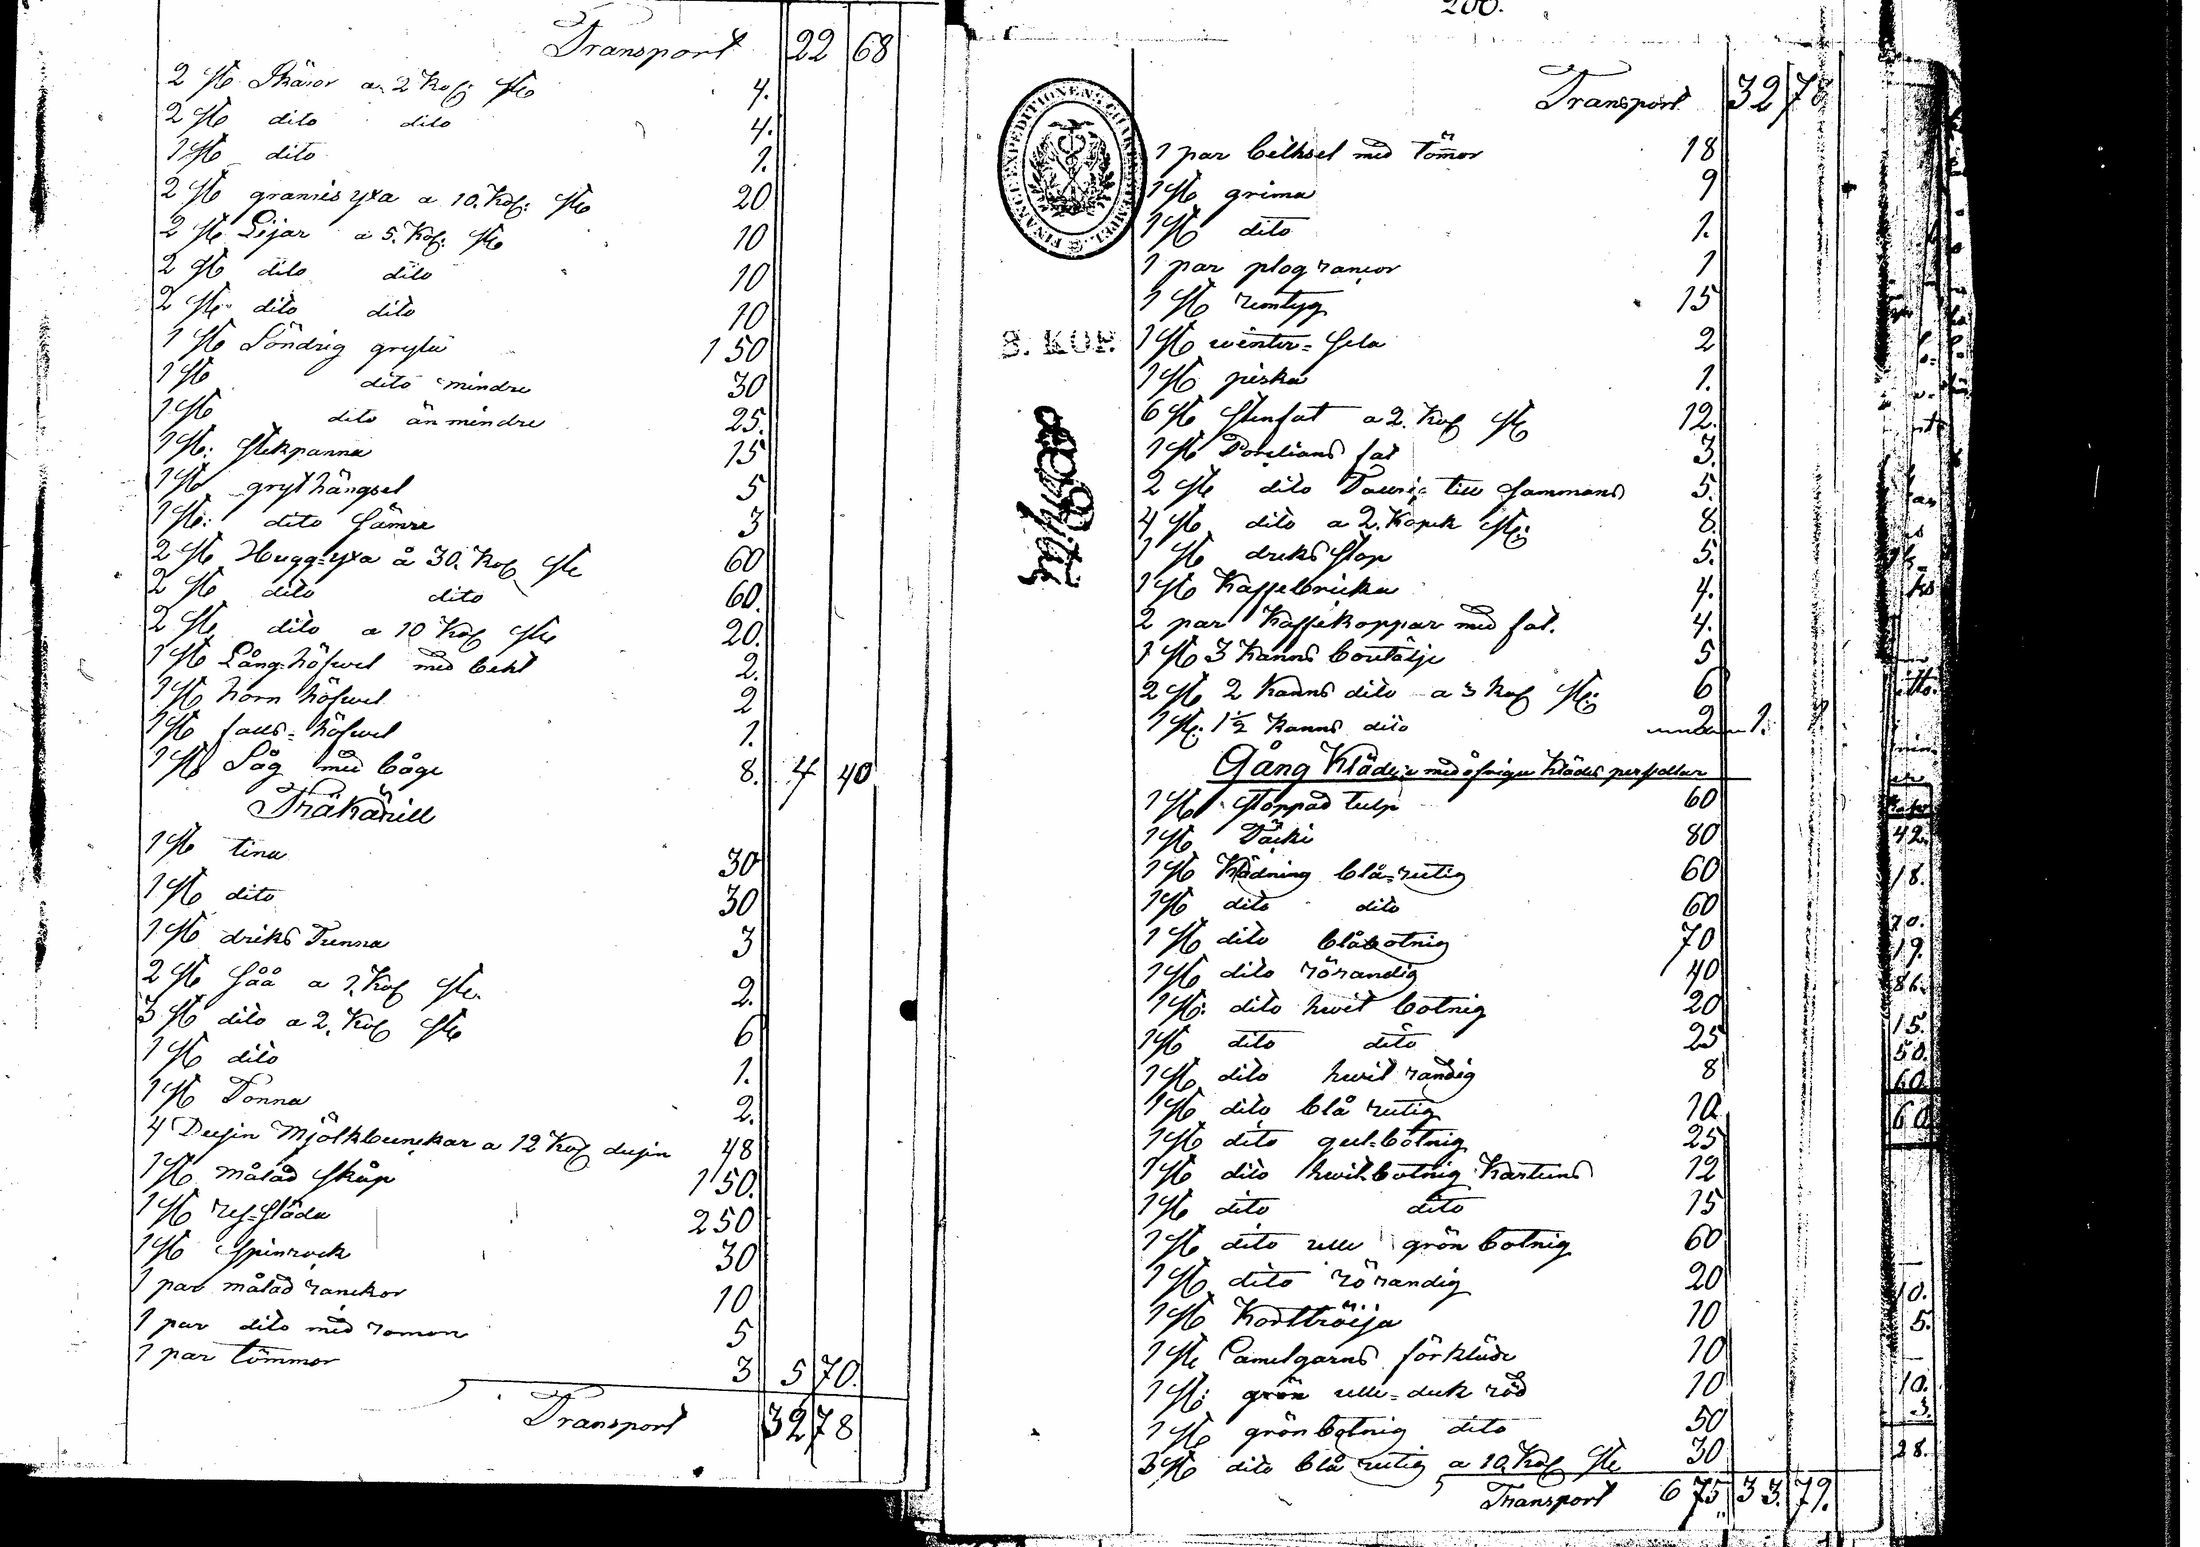 Transport 22 68
2 st. Skäror a 2 Kop: st. 4.
2 st. dito dito 4.
1 st. dito 1.
2 st. gramis yxa a 10. Kop: st. 20
2 st. Lijar a 5. Kop. st. 10
2 st. dito dito 10
2 st. dito dito 10
1 st. Söndrig gryta 1 50
1 st. dito mindre 30
1 st. dito än mindre 25.
1 st: stekpanna 15
1 st. gryt hängsel 5
1 st: dito sämre 3
2 st. Hugg-yxa á 30. Kop st. 60
2 st. dito dito 60.
2 st. dito a 10 Kop st. 20.
1 st. Lång-höfwel med bekt 2.
1 st. horn höfwel 2
1 st. fals-höfwel 1.
1 st. Såg med båge 8. 4 40
Träkärill
1 st. tina 30
1 st. dito 30
1 st. driks Tunna 3
2 st. såå a 1. Kop st. 2.
3 st. dito a 2. Kop st. 6
1 st. dito 1.
1 st. Tonna 2.
4 Dusin Mjölkbunckar a 12 Kop dusin 48
1 st. målad skåp 1 50.
1 st. res-släda 2 50
1 st. Spinrock 30
1 par målad ranckor 10
1 par dito med romon 5
1 par tömmor 3 5 70.
Transport 32 78
200.
Transport 32 78
FINANCE EXPEDITIONENS CHARTÆ STEMPEL
1 par betksel med tömor 18
1 st. grima 9
1 st. dito 1.
1 par plog rancor 1
1 st. remtyg 15
8. KOP. 1 st. winter-sela 2
1 st. piska 1.
6 st. stenfat a 2. Kop st. 12.
1 st. Porslians fat 3.
2 st. dito till sammans 5.
4 st. dito a 2. Kopek st: 8.
1 st. driks stop 5.
1 st. Kaffebricka 4.
2 par Kaffekoppar med fat. 4.
1 st. 3 Kanns boutälje 5
2 st. 2 Kanns dito a 3 Kop st: 6
1 st. 1½ Kanns dito 2 1. 1
Gång Kläder med öfriga Klädes persedlar
1 st. stoppad tulp 60
1 st. Täcki 80
1 st. Klädning blå-rutig 60
1 st. dito dito 60
1 st. dito blåbotnig 70
1 st. dito rörandig 40
1 st: dito hwit botnig 20
1 st. dito dito 25
1 st. dito hwit randig 8
1 st. dito blå rutig 10
1 st. dito gul-botnig 25
1 st. dito hwit botnig Kartuns 12
1 st. dito dito 15
1 st. dito ulle grön botnig 60
1 st. dito rörandig 20
1 st. Korttröija 10
1 st. Camelgarns förkläde 10
1 st: grön ulle-duk röd 10
1 st. grön botnig dito 50
3 st. dito blå rutig a 10. Kop st. 30
Transport 6 75 33. 79.